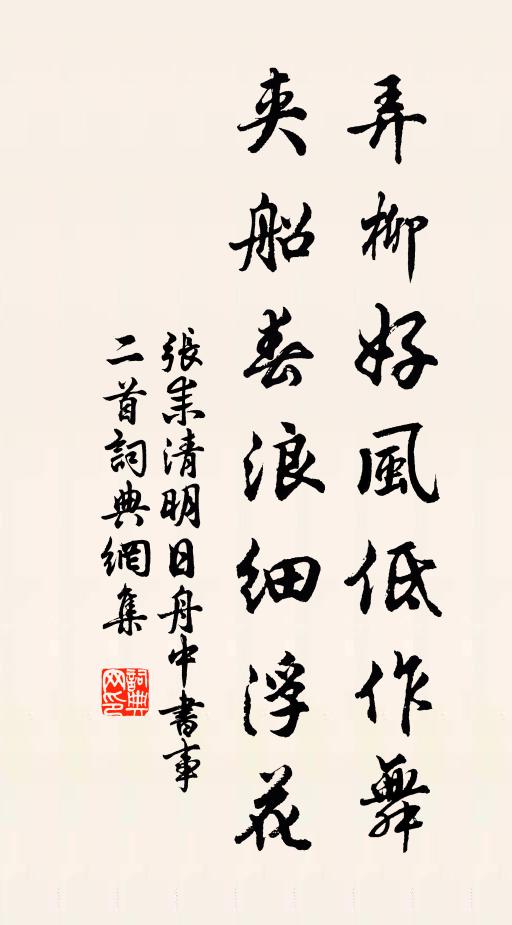 弄柳好風低作舞
夾船春浪細浮花
張耒清明日舟中書事
二首詞典網集
詞典網印